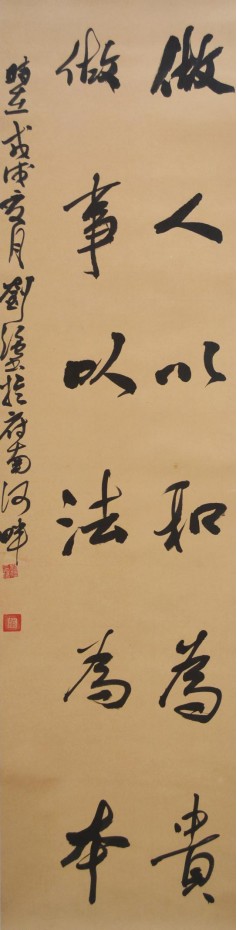 做人以和為貴
做事以法為本
時在戊戌夏月劉書於府南河畔